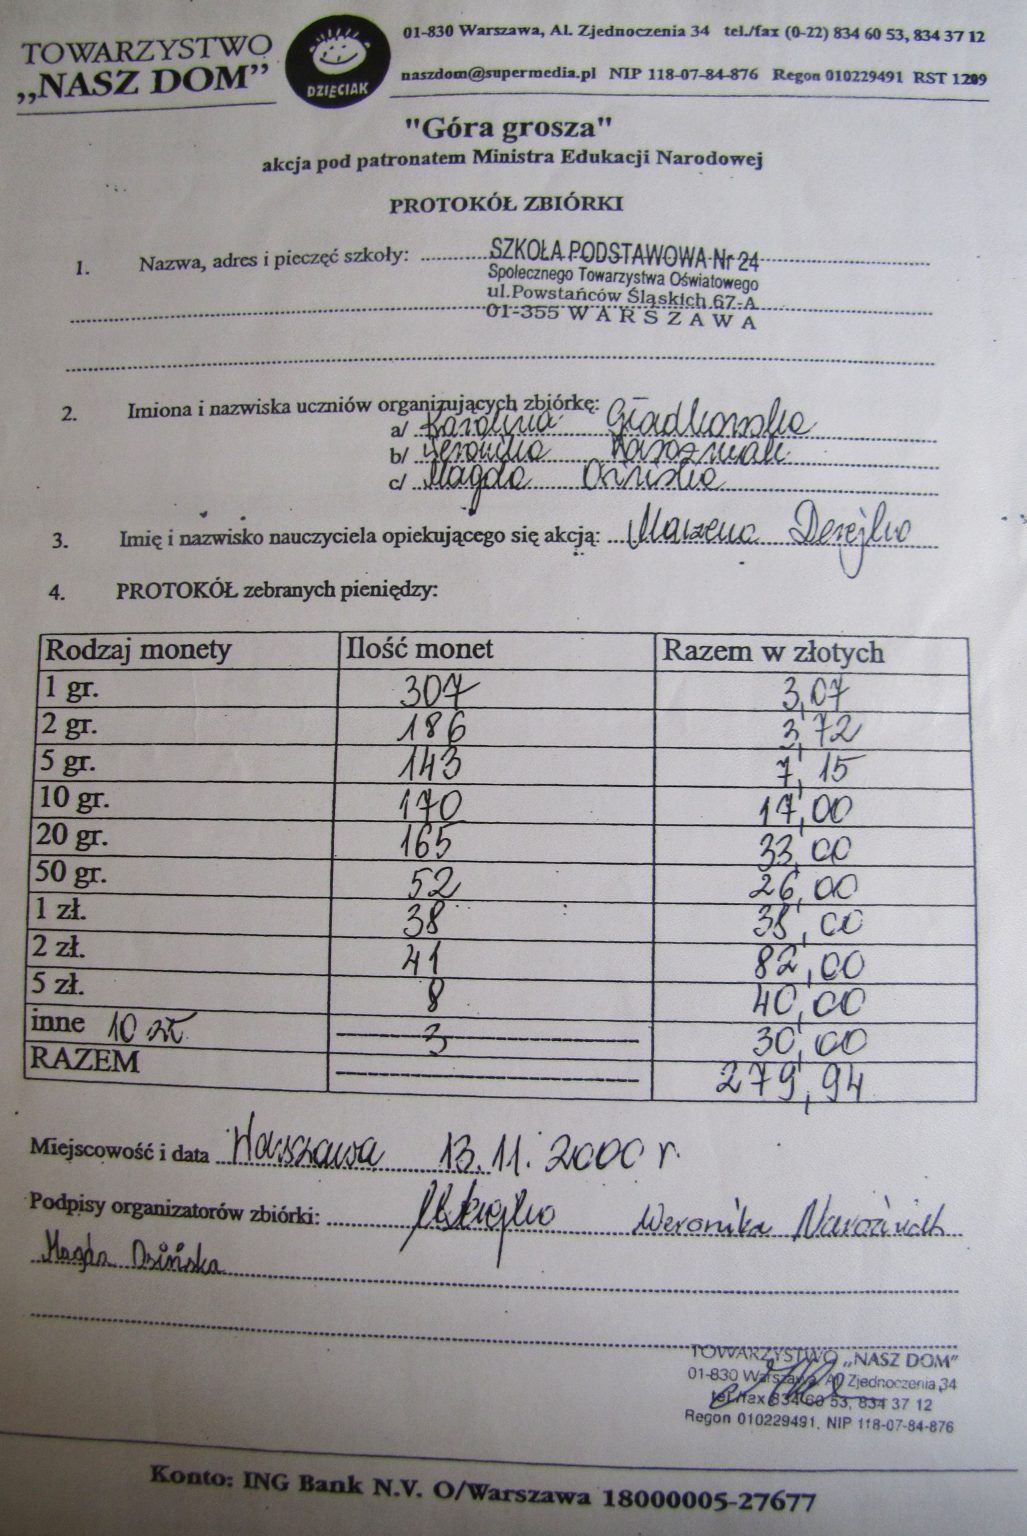 TOWARZYSTWO
„NASZ DOM”
DZIĘCIAK
01-830 Warszawa, Al. Zjednoczenia 34 tel./fax (0-22) 834 60 53, 834 37 12
naszdom@supermedia.pl NIP 118-07-84-876 Regon 010229491 RST 1209
"Góra grosza"
akcja pod patronatem Ministra Edukacji Narodowej
PROTOKÓŁ ZBIÓRKI
1. Nazwa, adres i pieczęć szkoły: SZKOŁA PODSTAWOWA Nr 24
Społecznego Towarzystwa Oświatowego
ul. Powstańców Śląskich 67-A
01-355 WARSZAWA
2. Imiona i nazwiska uczniów organizujących zbiórkę:
a/ Karolina Gładkowska
b/ Weronika Naroźniak
c/ Magda Osińska
3. Imię i nazwisko nauczyciela opiekującego się akcją: Marzena Derejko
4. PROTOKÓŁ zebranych pieniędzy:
Rodzaj monety Ilość monet Razem w złotych
1 gr. 307 3,07
2 gr. 186 3,72
5 gr. 143 7,15
10 gr. 170 17,00
20 gr. 165 33,00
50 gr. 52 26,00
1 zł. 38 38,00
2 zł. 41 82,00
5 zł. 8 40,00
inne 10 zł 3 30,00
RAZEM 279,94
Miejscowość i data Warszawa 13.11.2000 r.
Podpisy organizatorów zbiórki: Weronika Naroźniak
Magda Osińska
TOWARZYSTWO „NASZ DOM”
01-830 Warszawa, Al. Zjednoczenia 34
tel./fax 834 60 53, 834 37 12
Regon 010229491, NIP 118-07-84-876
Konto: ING Bank N.V. O/Warszawa 18000005-27677